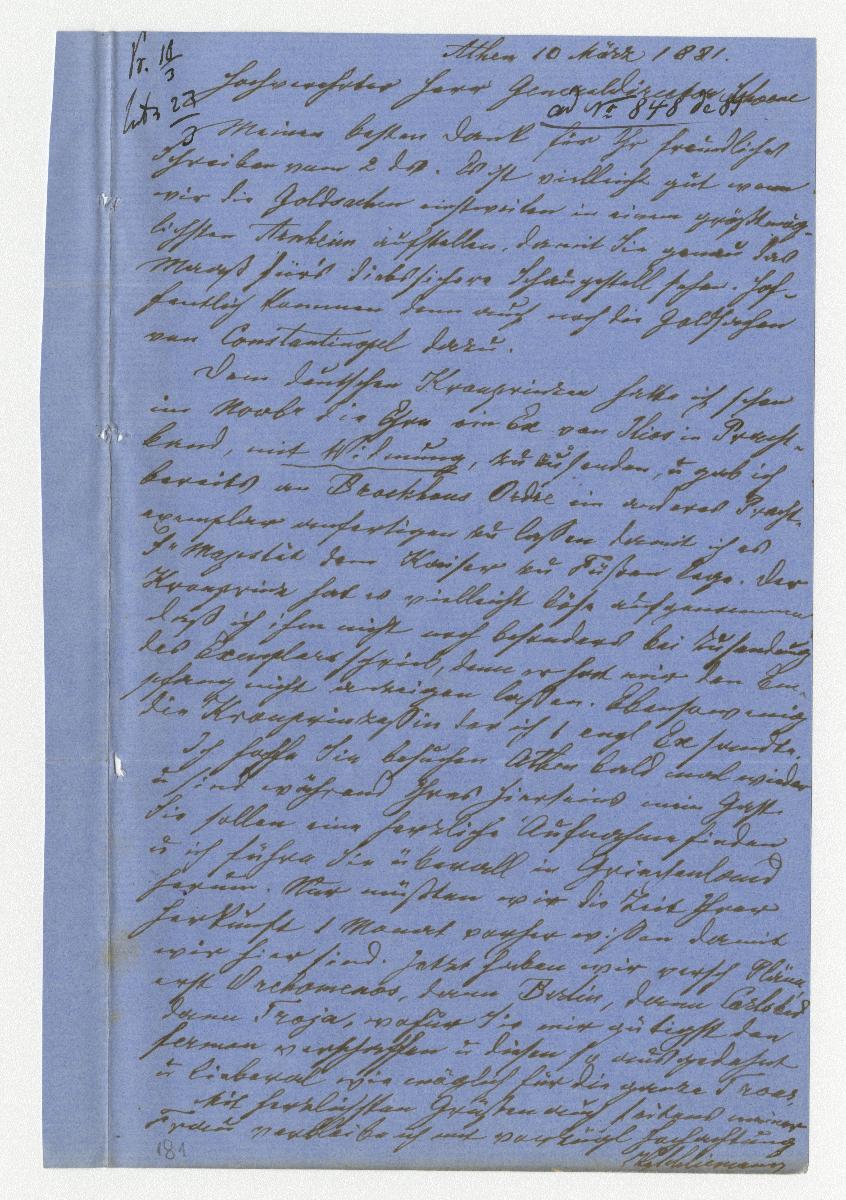 Athen 10 März 1881.
Pr. 18/3
Hochverehrter Herr Generaldirector Schoene
ad No 848 de 81
23/3
Meinen besten Dank für Ihr freundliches
Schreiben vom 2 ds. Es ist vielleicht gut wenn
wir die Goldsachen einstweilen in einem größtmög-
lichsten Arnheim aufstellen, damit Sie genau das
Maaß für's diebssichere Schaugestell sehen. Hof-
fentlich kommen dann auch noch die Goldsachen
von Constantinopel dazu.
Dem deutschen Kronprinzen hatte ich schon
im Novbr die Ehre ein Ex von Ilios in Pracht-
band, mit Widmung, zuzusenden, u gab ich
bereits an Brockhaus Ordre ein anderes Pracht-
exemplar anfertigen zu laßen damit ich es
Sr Majestät dem Kaiser zu Füßen lege. Der
Kronprinz hat es vielleicht böse aufgenommen
daß ich ihm nicht noch besonders bei Zusendung
des Exemplars schrieb, denn er hat mir den Em-
pfang nicht anzeigen laßen. Ebensowenig
die Kronprinzeßin der ich 1 engl Ex sandte.
Ich hoffe Sie besuchen Athen bald mal wieder
u sind während Ihres Hierseins mein Gast.
Sie sollen eine herzliche Aufnahme finden
u ich führe Sie überall in Griechenland
herum. Nur müßten wir die Zeit Ihrer
Herkunft 1 Monat vorher wißen damit
wir hier sind. Jetzt haben wir versch Pläne,
erst Orchomenos, dann Berlin, dann Carlsbad
dann Troja, wofür Sie mir gütigst den
Ferman verschaffen u diesen so ausgedehnt
u lieberal wie möglich für die ganze Troas.
Mit herzlichsten Grüßen auch seitens meiner
Frau verbleibe ich mit vorzügl Hochachtung
HySchliemann
181